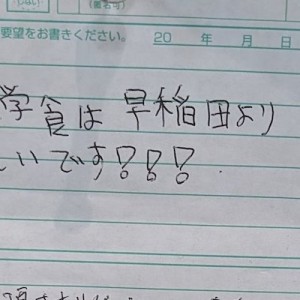 要望をお書きください。 20 年 月 日
学食は早稲田より
いです!!!